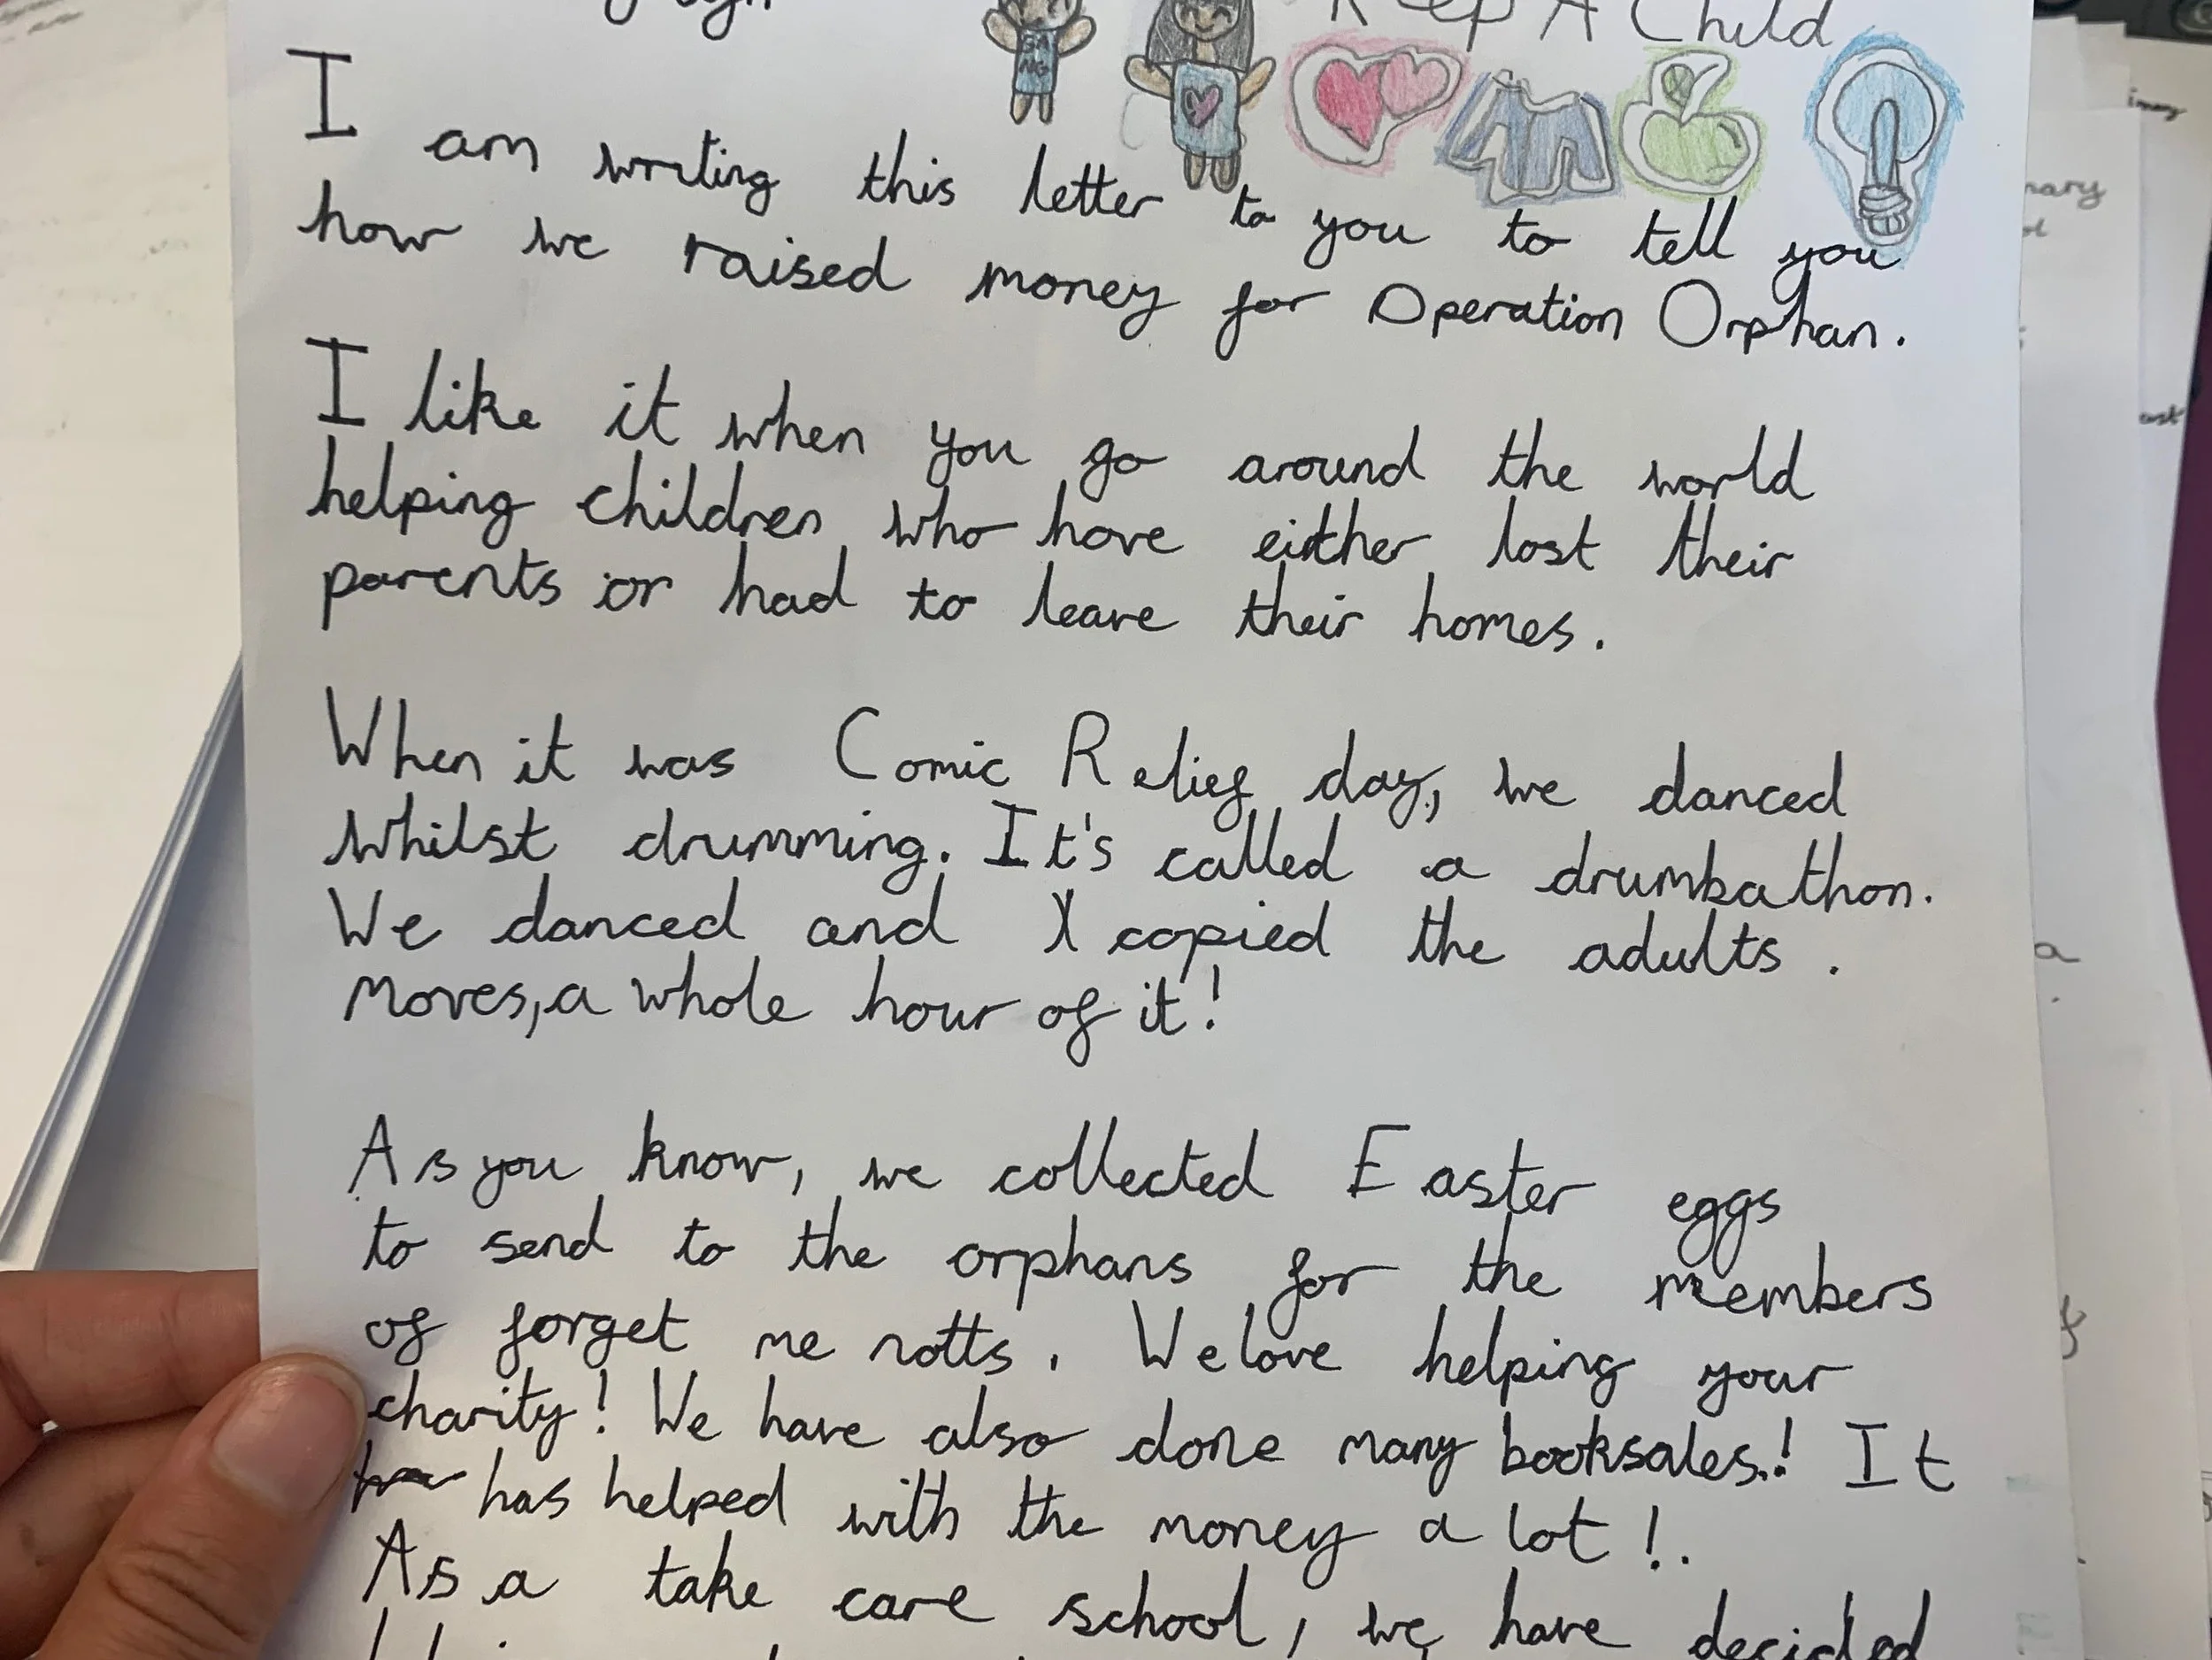 Keep A Child
SA
NG
I am writing this letter to you to tell you
how we raised money for Operation Orphan.
I like it when you go around the world
helping children who have either lost their
parents or had to leave their homes.
When it was Comic Relief day, we danced
whilst drumming. It's called a drumbathon.
We danced and I copied the adults.
moves, a whole hour of it!
As you know, we collected Easter eggs
to send to the orphans for the members
of forget me notts. We love helping your
charity! We have also done many booksales.! It
has helped with the money a lot!.
As a take care school, we have decided